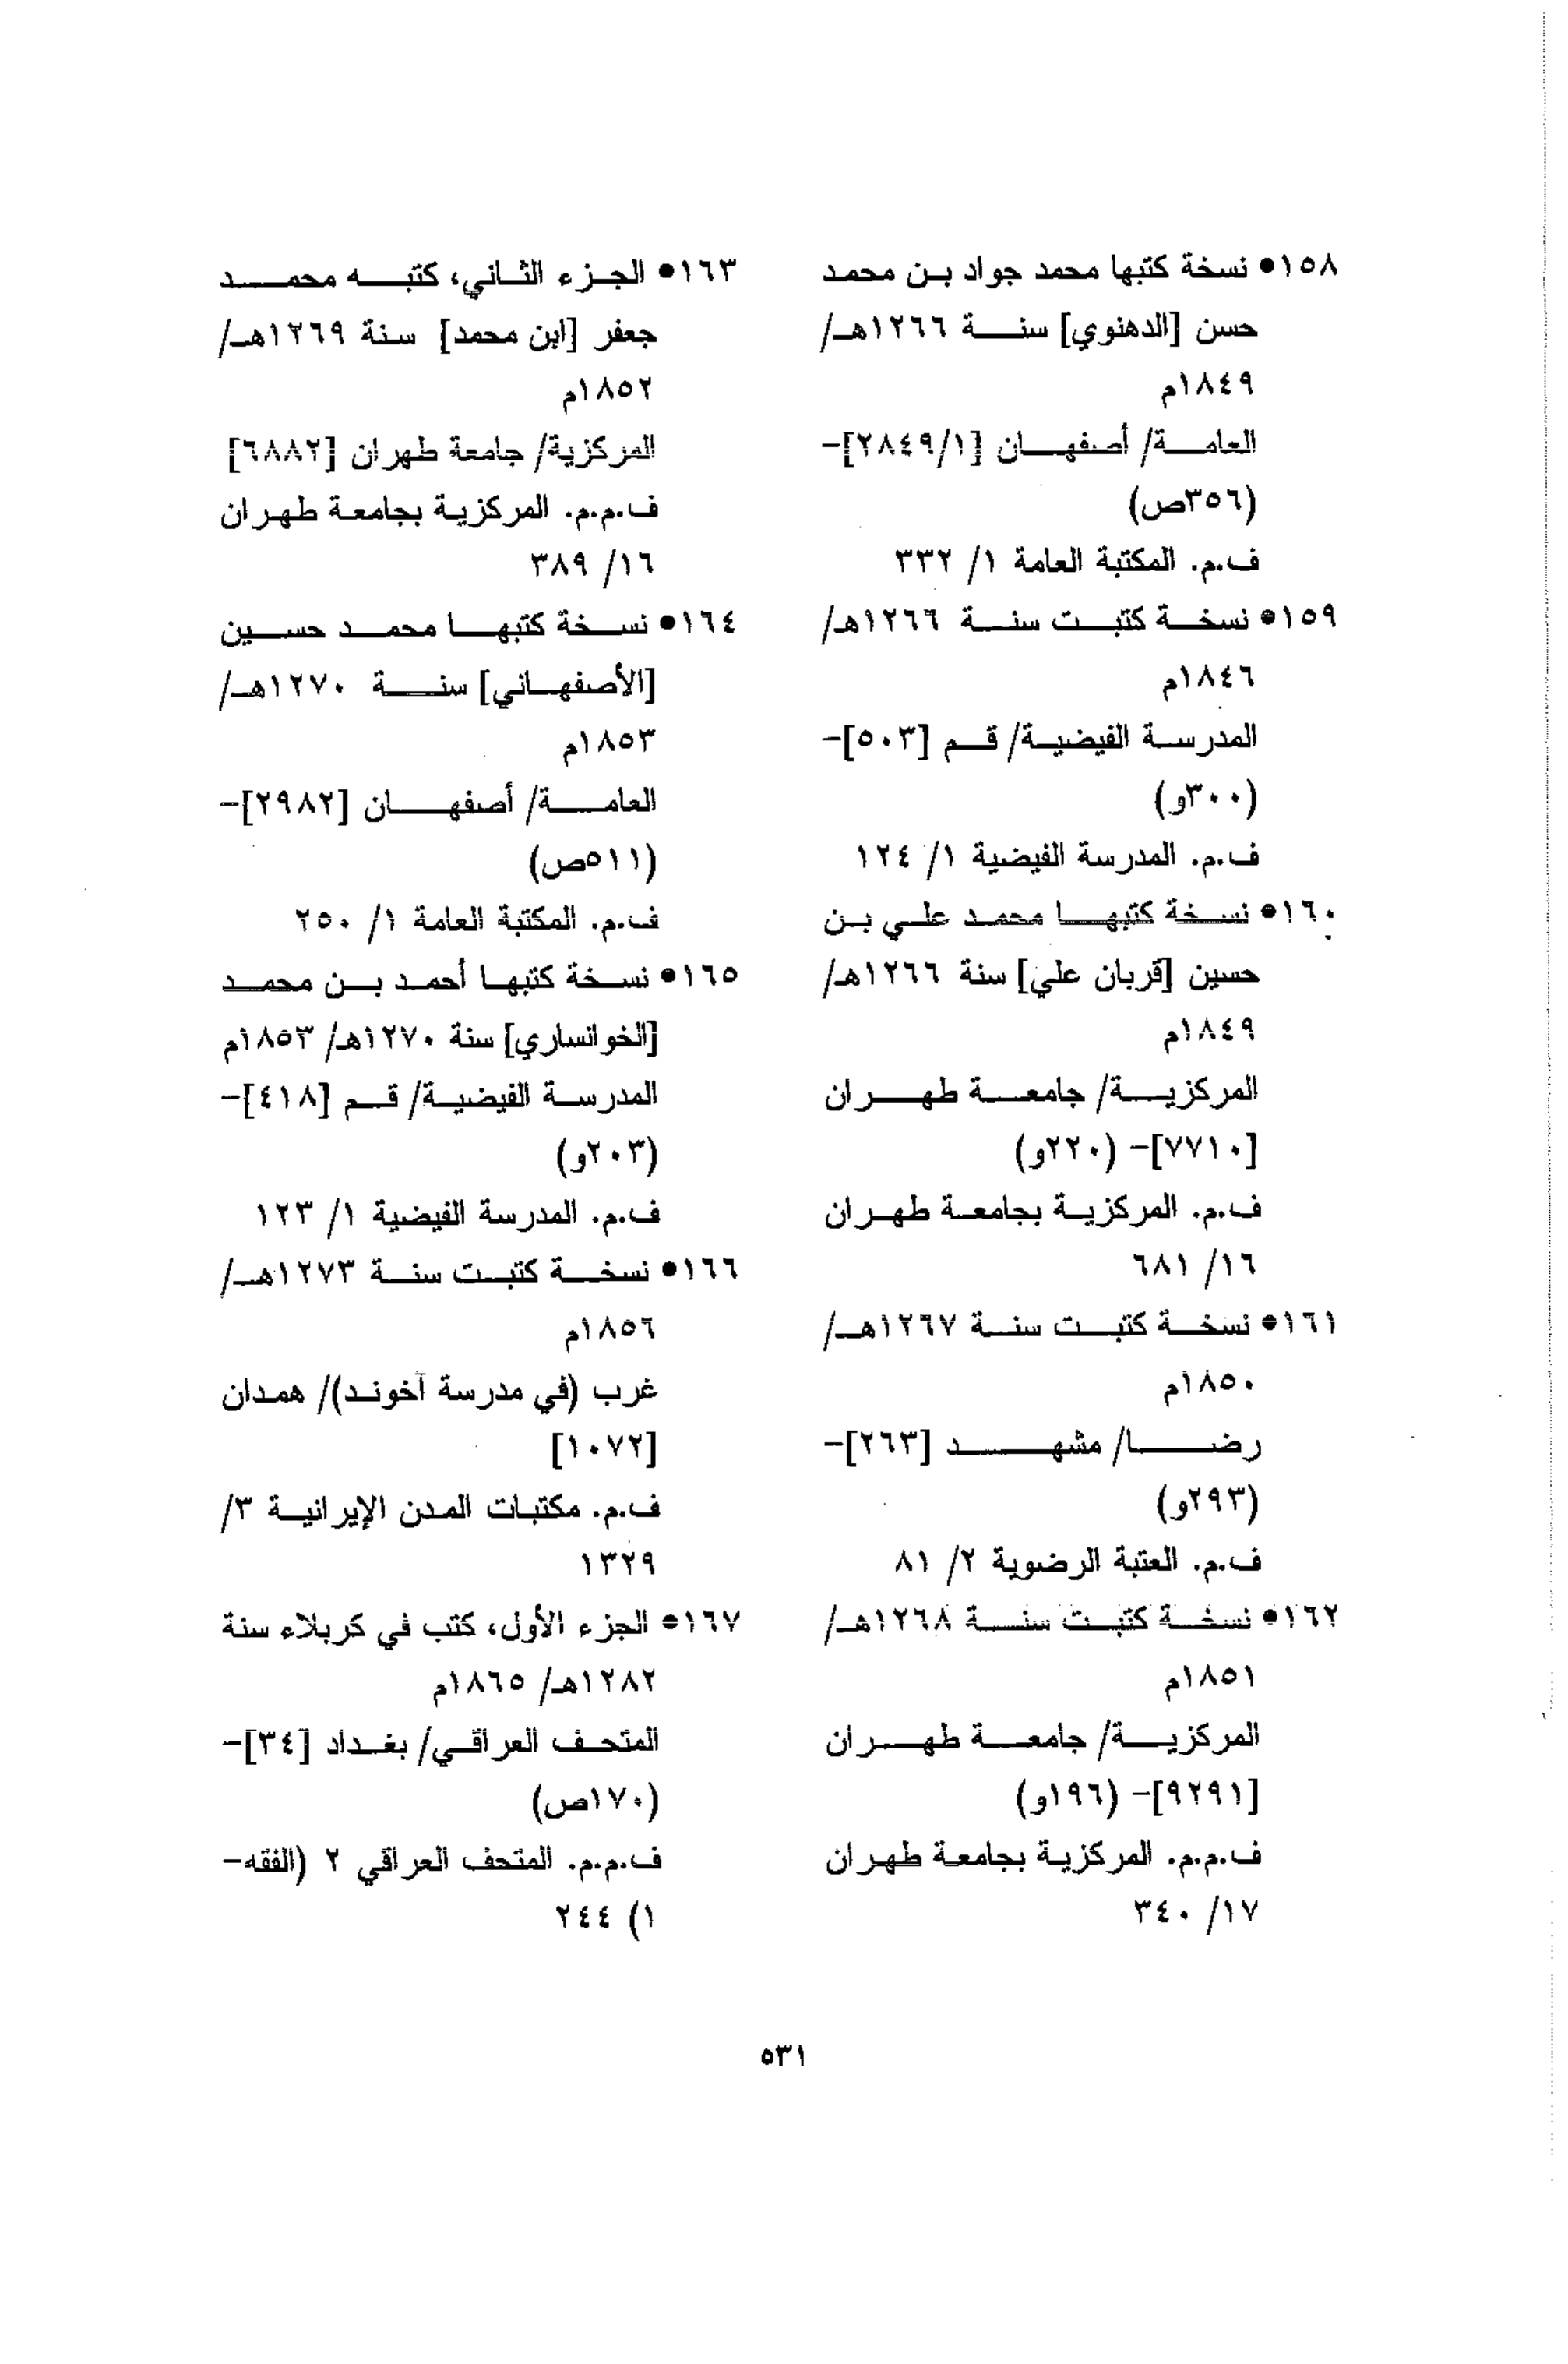 ١٥٨• نسخة كتبها محمد جواد بن محمد
حسن [الدهنوي] سنة ١٢٦٦هـ/
١٨٤٩م
العامة/ أصفهان [٢٨٤٩/١]-
(٣٥٦ص)
ف.م. المكتبة العامة ١/ ٣٣٢
١٥٩• نسخة كتبت سنة ١٢٦٦هـ/
١٨٤٦م
المدرسة الفيضية/ قم [٥٠٣]-
(٣٠٠و)
ف.م. المدرسة الفيضية ١/ ١٢٤
١٦٠• نسخة كتبها محمد علي بن
حسين [قربان علي] سنة ١٢٦٦هـ/
١٨٤٩م
المركزية/ جامعة طهران
[٧٧١٠]- (٢٢٠و)
ف.م. المركزية بجامعة طهران
١٦/ ٦٨١
١٦١• نسخة كتبت سنة ١٢٦٧هـ/
١٨٥٠م
رضا/ مشهد [٢٦٣]-
(٢٩٣و)
ف.م. العتبة الرضوية ٢/ ٨١
١٦٢• نسخة كتبت سنة ١٢٦٨هـ/
١٨٥١م
المركزية/ جامعة طهران
[٩٢٩١]- (١٩٦و)
ف.م.م. المركزية بجامعة طهران
١٧/ ٣٤٠
١٦٣• الجزء الثاني، كتبه محمد
جعفر [ابن محمد] سنة ١٢٦٩هـ/
١٨٥٢م
المركزية/ جامعة طهران [٦٨٨٢]
ف.م.م. المركزية بجامعة طهران
١٦/ ٣٨٩
١٦٤• نسخة كتبها محمد حسين
[الأصفهاني] سنة ١٢٧٠هـ/
١٨٥٣م
العامة/ أصفهان [٢٩٨٢]-
(٥١١ص)
ف.م. المكتبة العامة ١/ ٢٥٠
١٦٥• نسخة كتبها أحمد بن محمد
[الخوانساري] سنة ١٢٧٠هـ/ ١٨٥٣م
المدرسة الفيضية/ قم [٤١٨]-
(٢٠٣و)
ف.م. المدرسة الفيضية ١/ ١٢٣
١٦٦• نسخة كتبت سنة ١٢٧٣هـ/
١٨٥٦م
غرب (في مدرسة آخوند)/ همدان
[١٠٧٢]
ف.م. مكتبات المدن الإيرانية ٣/
١٣٢٩
١٦٧• الجزء الأول، كتب في كربلاء سنة
١٢٨٢هـ/ ١٨٦٥م
المتحف العراقي/ بغداد [٣٤]-
(١٧٠ص)
ف.م.م. المتحف العراقي ٢ (الفقه-
١) ٢٤٤
٥٣١